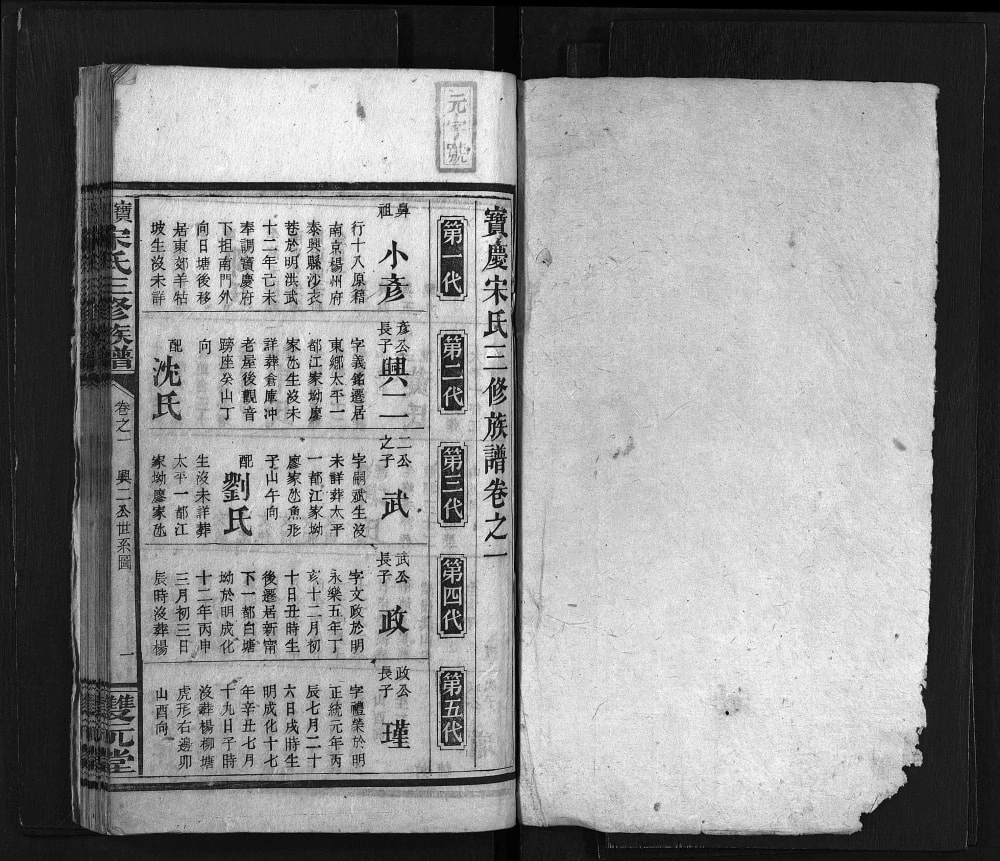 元字號
寶慶宋氏三修族譜卷之一
第一代
第二代
第三代
第四代
第五代
鼻祖
小彥
行十八原籍
南京楊州府
泰興縣沙衣
巷於明洪武
十二年己未
奉調寶慶府
下担南門外
向日塘後移
居東郊羊牯
坡生沒未詳
彥公長子
興二
字義銘遷居
東鄉太平一
都江家坳廖
家氹生沒未
詳葬倉庫冲
老屋後觀音
蹐座癸山丁
向
配
沈氏
二公之子
武
字嗣斌生沒
未詳葬太平
一都江家坳
廖家氹魚形
子山午向
配
劉氏
生沒未詳葬
太平一都江
家坳廖家氹
武公長子
政
字文政於明
永樂五年丁
亥十二月初
十日丑時生
後遷居新甯
下一都白塘
坳於明成化
十二年丙申
三月初三日
辰時沒葬楊
政公長子
瑾
字禮榮於明
正統元年丙
辰七月二十
六日戌時生
明成化十七
年辛丑七月
十九日子時
沒葬楊柳塘
虎形右邊卯
山酉向
寶慶宋氏三修族譜
卷之一
興二公世系圖
一
雙元堂